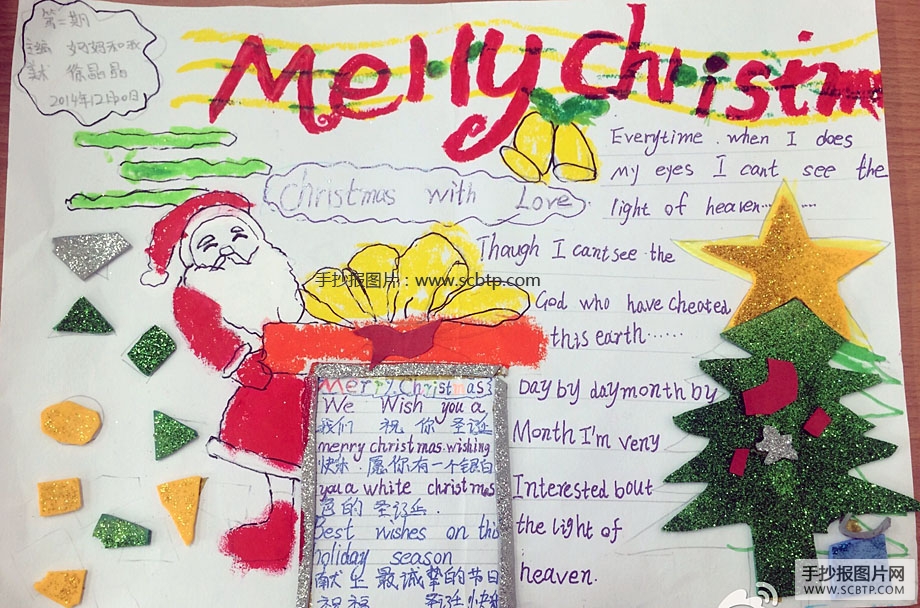 第二期
主编 妈妈和我
徐晶晶
Merry Christm
Christmas with Love
Everytime when I does
my eyes I cant see the
light of heaven……
Though I cant see the
God who have cheated
this earth……
Day by day month by
Month I'm very
Interested bout
the light of
heaven.
Merry Christmas
We Wish you a
我们 祝 你 圣诞
merry christmas wishing
快乐.愿你有一个银白
you a white christmas
色的 圣诞.
Best wishes on this
holiday season
献上 最诚挚的节日
祝福 圣诞快乐
手抄报图片:www.scbtp.com
手抄报图片网
WWW.SCBTP.COM